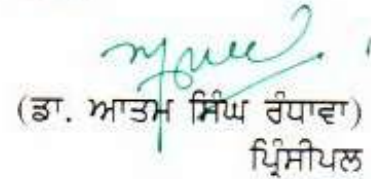 (ਡਾ. ਆਤਮ ਸਿੰਘ ਰੰਧਾਵਾ)
ਪ੍ਰਿੰਸੀਪਲ